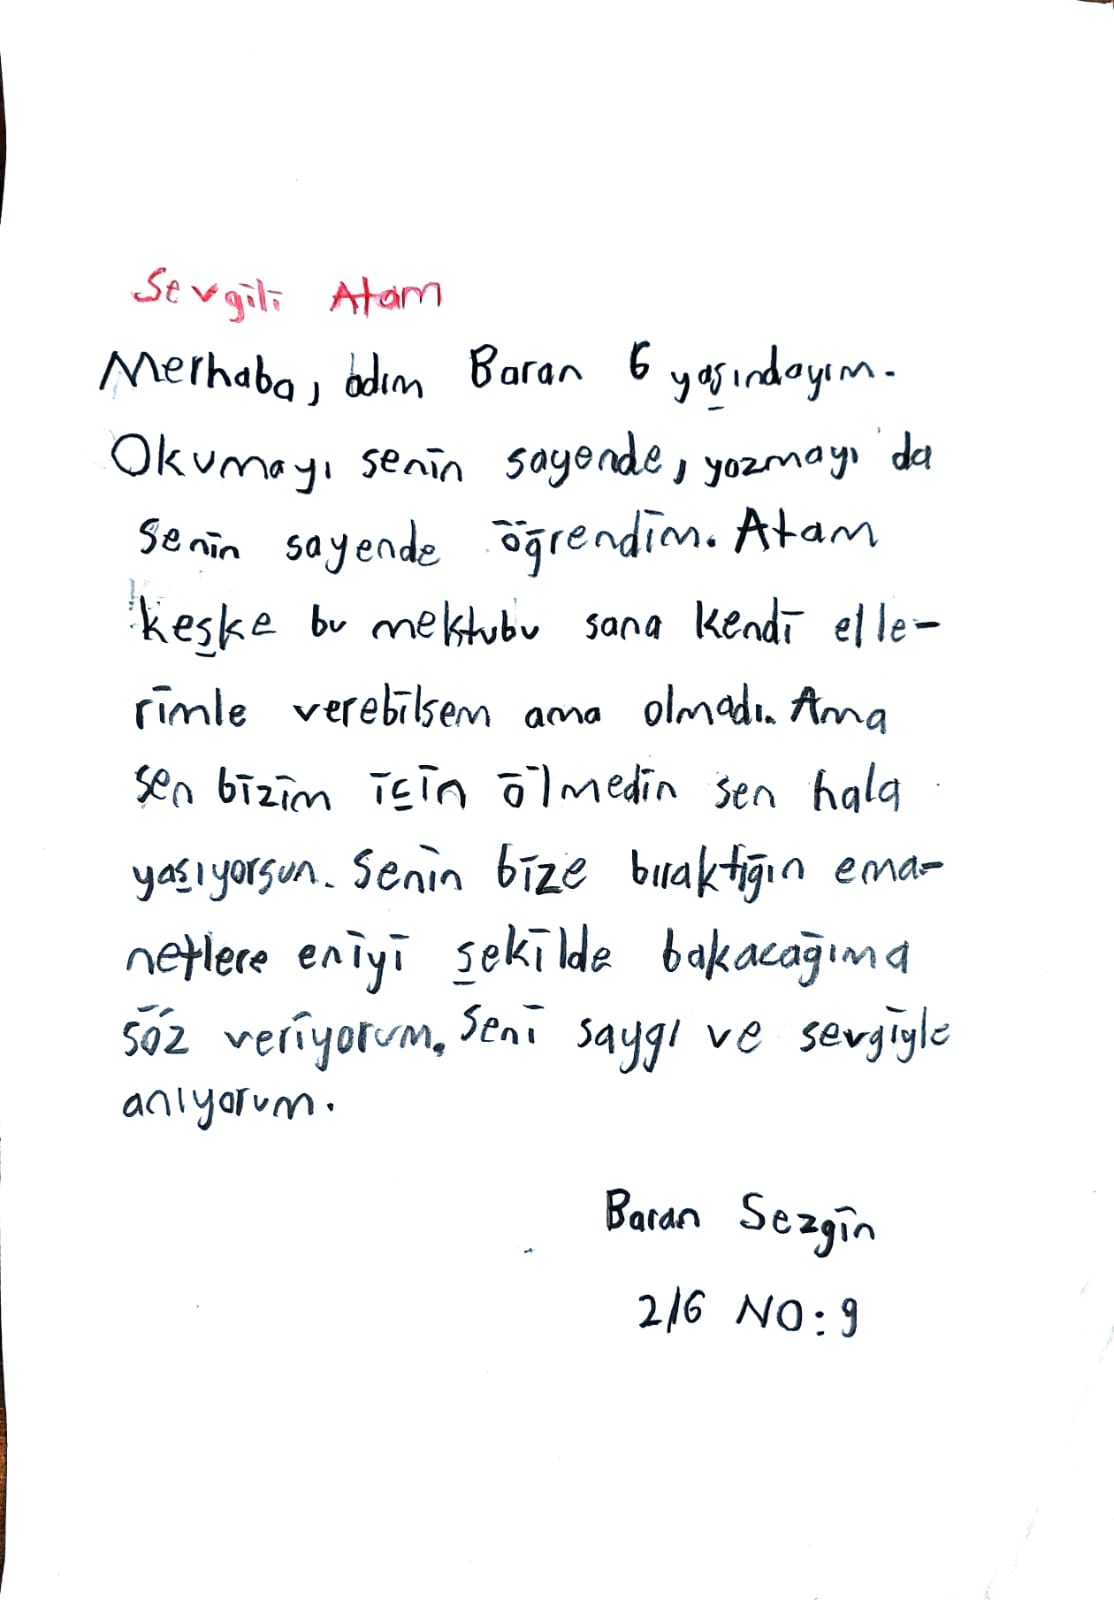 Sevgili Atam
Merhaba, adım Baran 6 yaşındayım.
Okumayı senin sayende, yazmayı da
senin sayende öğrendim. Atam
keşke bu mektubu sana kendi elle-
rimle verebilsem ama olmadı. Ama
sen bizim için ölmedin sen hala
yaşıyorsun. Senin bize bıraktığın ema-
netlere eniyi şekilde bakacağıma
söz veriyorum. Seni saygı ve sevgiyle
anıyorum.
Baran Sezgin
2/6 NO: 9